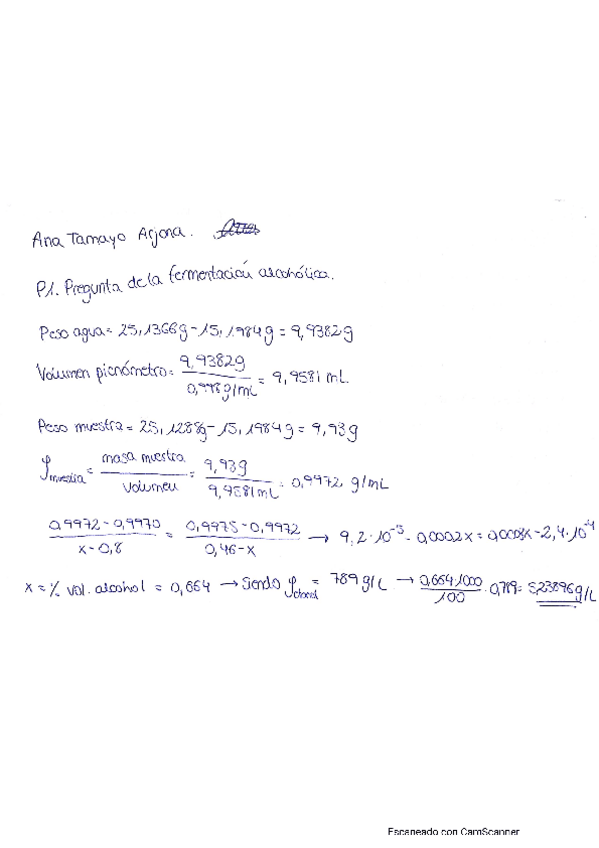 Ana Tamayo Arjona.
P1. Pregunta de la fermentación alcohólica.
Peso agua = 25,1366g - 15,1984g = 9,9382g
Volumen picnómetro = 9,9382g / 0,998g/mL = 9,9581 mL
Peso muestra = 25,1288g - 15,1984g = 9,93g
ρmuestra = masa muestra / volumen = 9,93g / 9,9581mL = 0,9972 g/mL
0,9972 - 0,9970 / x - 0,8 = 0,9975 - 0,9972 / 0,46 - x → 9,2·10⁻⁵ - 0,0002x = 0,0003x - 2,4·10⁻⁴
x = % vol. alcohol = 0,664 → Siendo ρetanol = 789 g/L → 0,664·1000 / 100 · 0,789 = 5,23896g/L
Escaneado con CamScanner